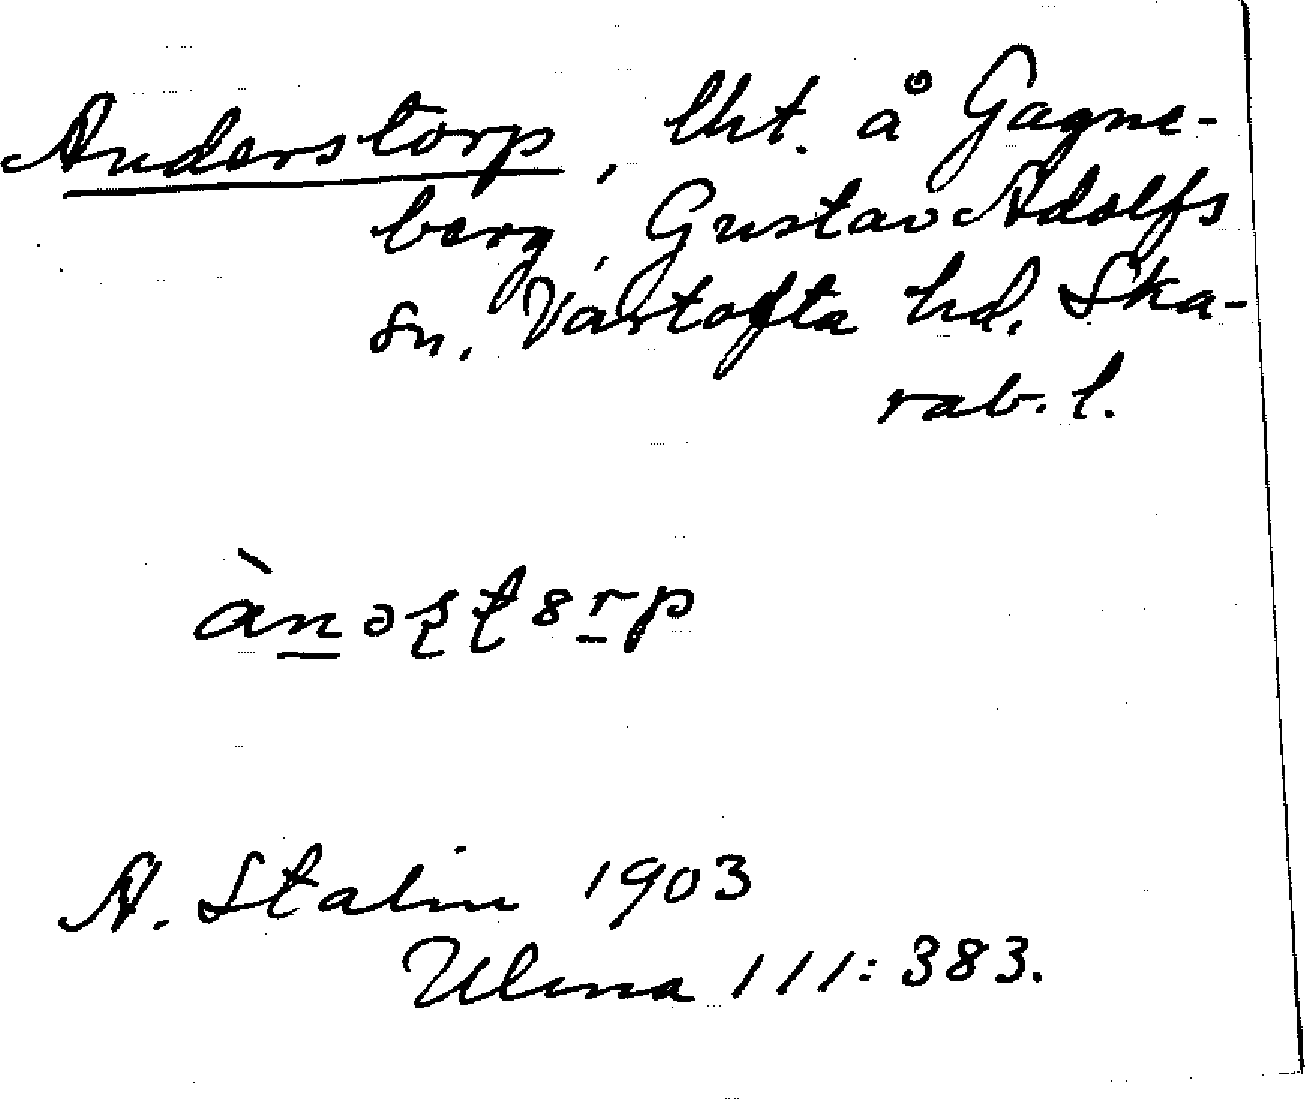 Anderstorp, lht. å Gagne-
berg, Gustav Adolfs
sn. Vartofta hd. Ska-
rab. l.
ànəʂʈ8rp
A. Stalin 1903
Ulma 111:383.